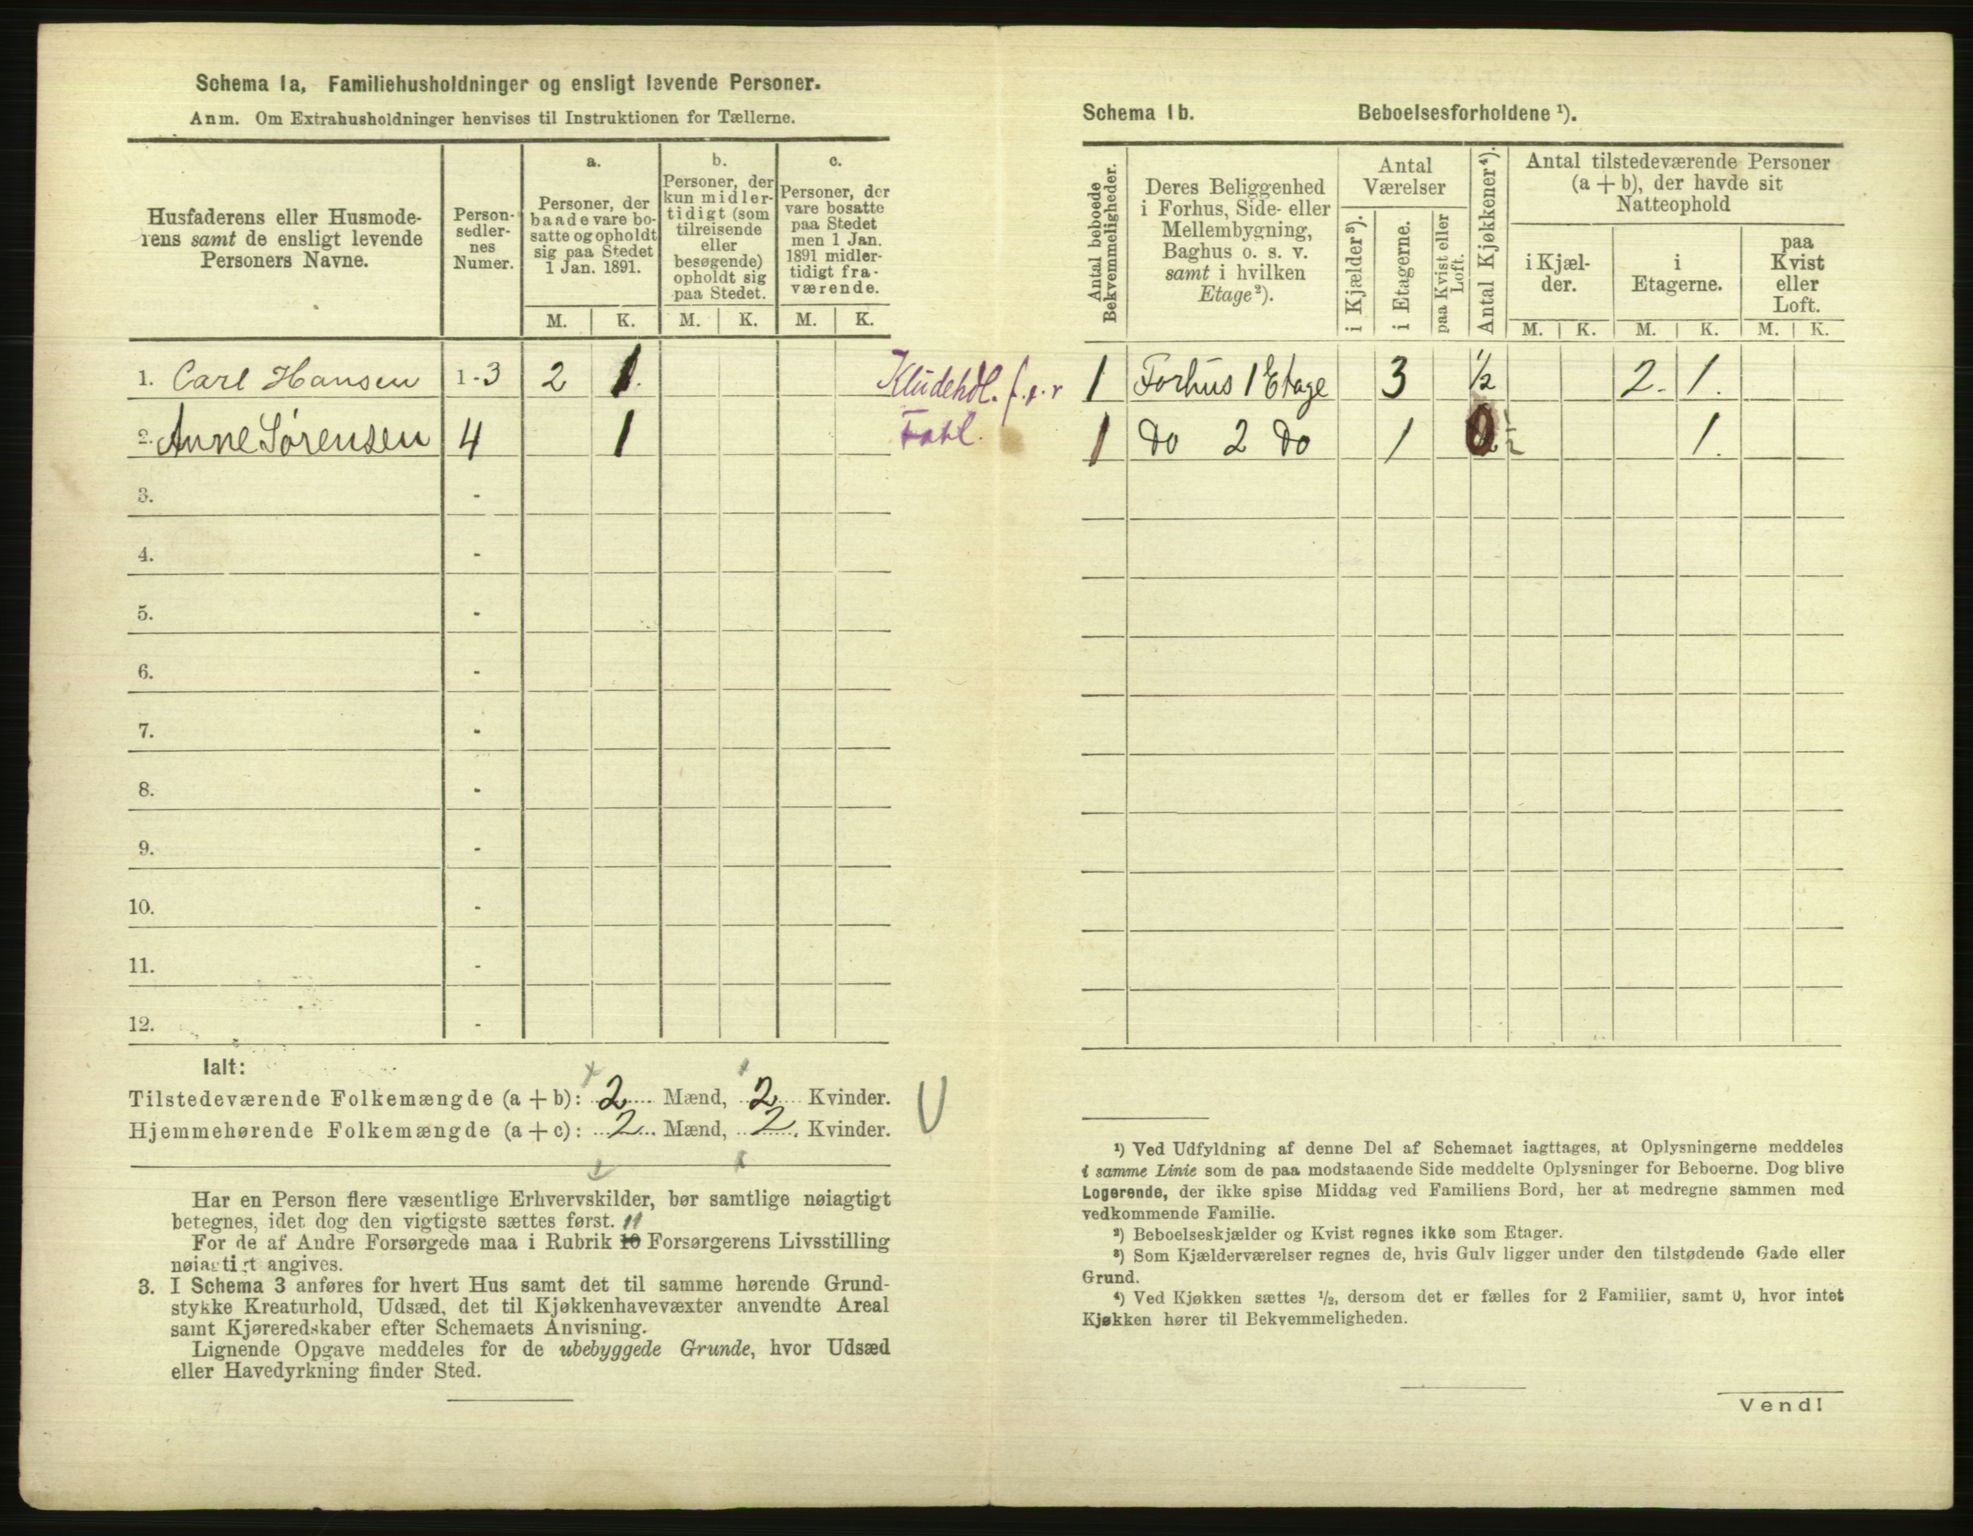 Schema 1a, Familiehusholdninger og ensligt levende Personer.
Anm. Om Extrahusholdninger henvises til Instruktionen for Tællerne.
Husfaderens eller Husmode-
rens samt de ensligt levende
Personers Navne.
Person-
sedler-
nes
Numer.
a.
Personer, der
baade vare bo-
satte og opholdt
sig paa Stedet
1 Jan. 1891.
b.
Personer, der
kun midler-
tidigt (som
tilreisende
eller
besøgende)
opholdt sig
paa Stedet.
c.
Personer, der
vare bosatte
paa Stedet
men 1 Jan.
1891 midler-
tidigt fra-
værende.
M. K. M. K. M. K.
1. Carl Hansen 1-3 2 1.
2. Anne Sørensen 4 1
3. -
4. -
5. -
6. -
7. -
8. -
9. -
10. -
11. -
12. -
Kludehdl.
Ialt:
Tilstedeværende Folkemængde (a + b): 2 Mænd, 2 Kvinder.
Hjemmehørende Folkemængde (a + c): 2 Mænd, 2 Kvinder.
Har en Person flere væsentlige Erhvervskilder, bør samtlige nøiagtigt
betegnes, idet dog den vigtigste sættes først. 11
For de af Andre Forsørgede maa i Rubrik 10 Forsørgerens Livsstilling
nøiagtigt angives.
3. I Schema 3 anføres for hvert Hus samt det til samme hørende Grund-
stykke Kreaturhold, Udsæd, det til Kjøkkenhavevæxter anvendte Areal
samt Kjøreredskaber efter Schemaets Anvisning.
Lignende Opgave meddeles for de ubebyggede Grunde, hvor Udsæd
eller Havedyrkning finder Sted.
Schema 1b. Beboelsesforholdene ¹).
Antal beboede
Bekvemmeligheder.
Deres Beliggenhed
i Forhus, Side- eller
Mellembygning,
Baghus o. s. v.
samt i hvilken
Etage²).
Antal
Værelser
i Kjælder³).
i Etagerne.
paa Kvist eller
Loft.
Antal Kjøkkener⁴).
Antal tilstedeværende Personer
(a + b), der havde sit
Natteophold
i Kjæl-
der.
i
Etagerne.
paa
Kvist
eller
Loft.
M. K. M. K. M. K.
1 Forhus 1 Etage 3 1/2 2. 1.
1 do 2 do 1 0 1/2 1.
¹) Ved Udfyldning af denne Del af Schemaet iagttages, at Oplysningerne meddeles
i samme Linie som de paa modstaaende Side meddelte Oplysninger for Beboerne. Dog blive
Logerende, der ikke spise Middag ved Familiens Bord, her at medregne sammen med
vedkommende Familie.
²) Beboelseskjælder og Kvist regnes ikke som Etager.
³) Som Kjælderværelser regnes de, hvis Gulv ligger under den tilstødende Gade eller
Grund.
⁴) Ved Kjøkken sættes ½, dersom det er fælles for 2 Familier, samt 0, hvor intet
Kjøkken hører til Bekvemmeligheden.
Vend!